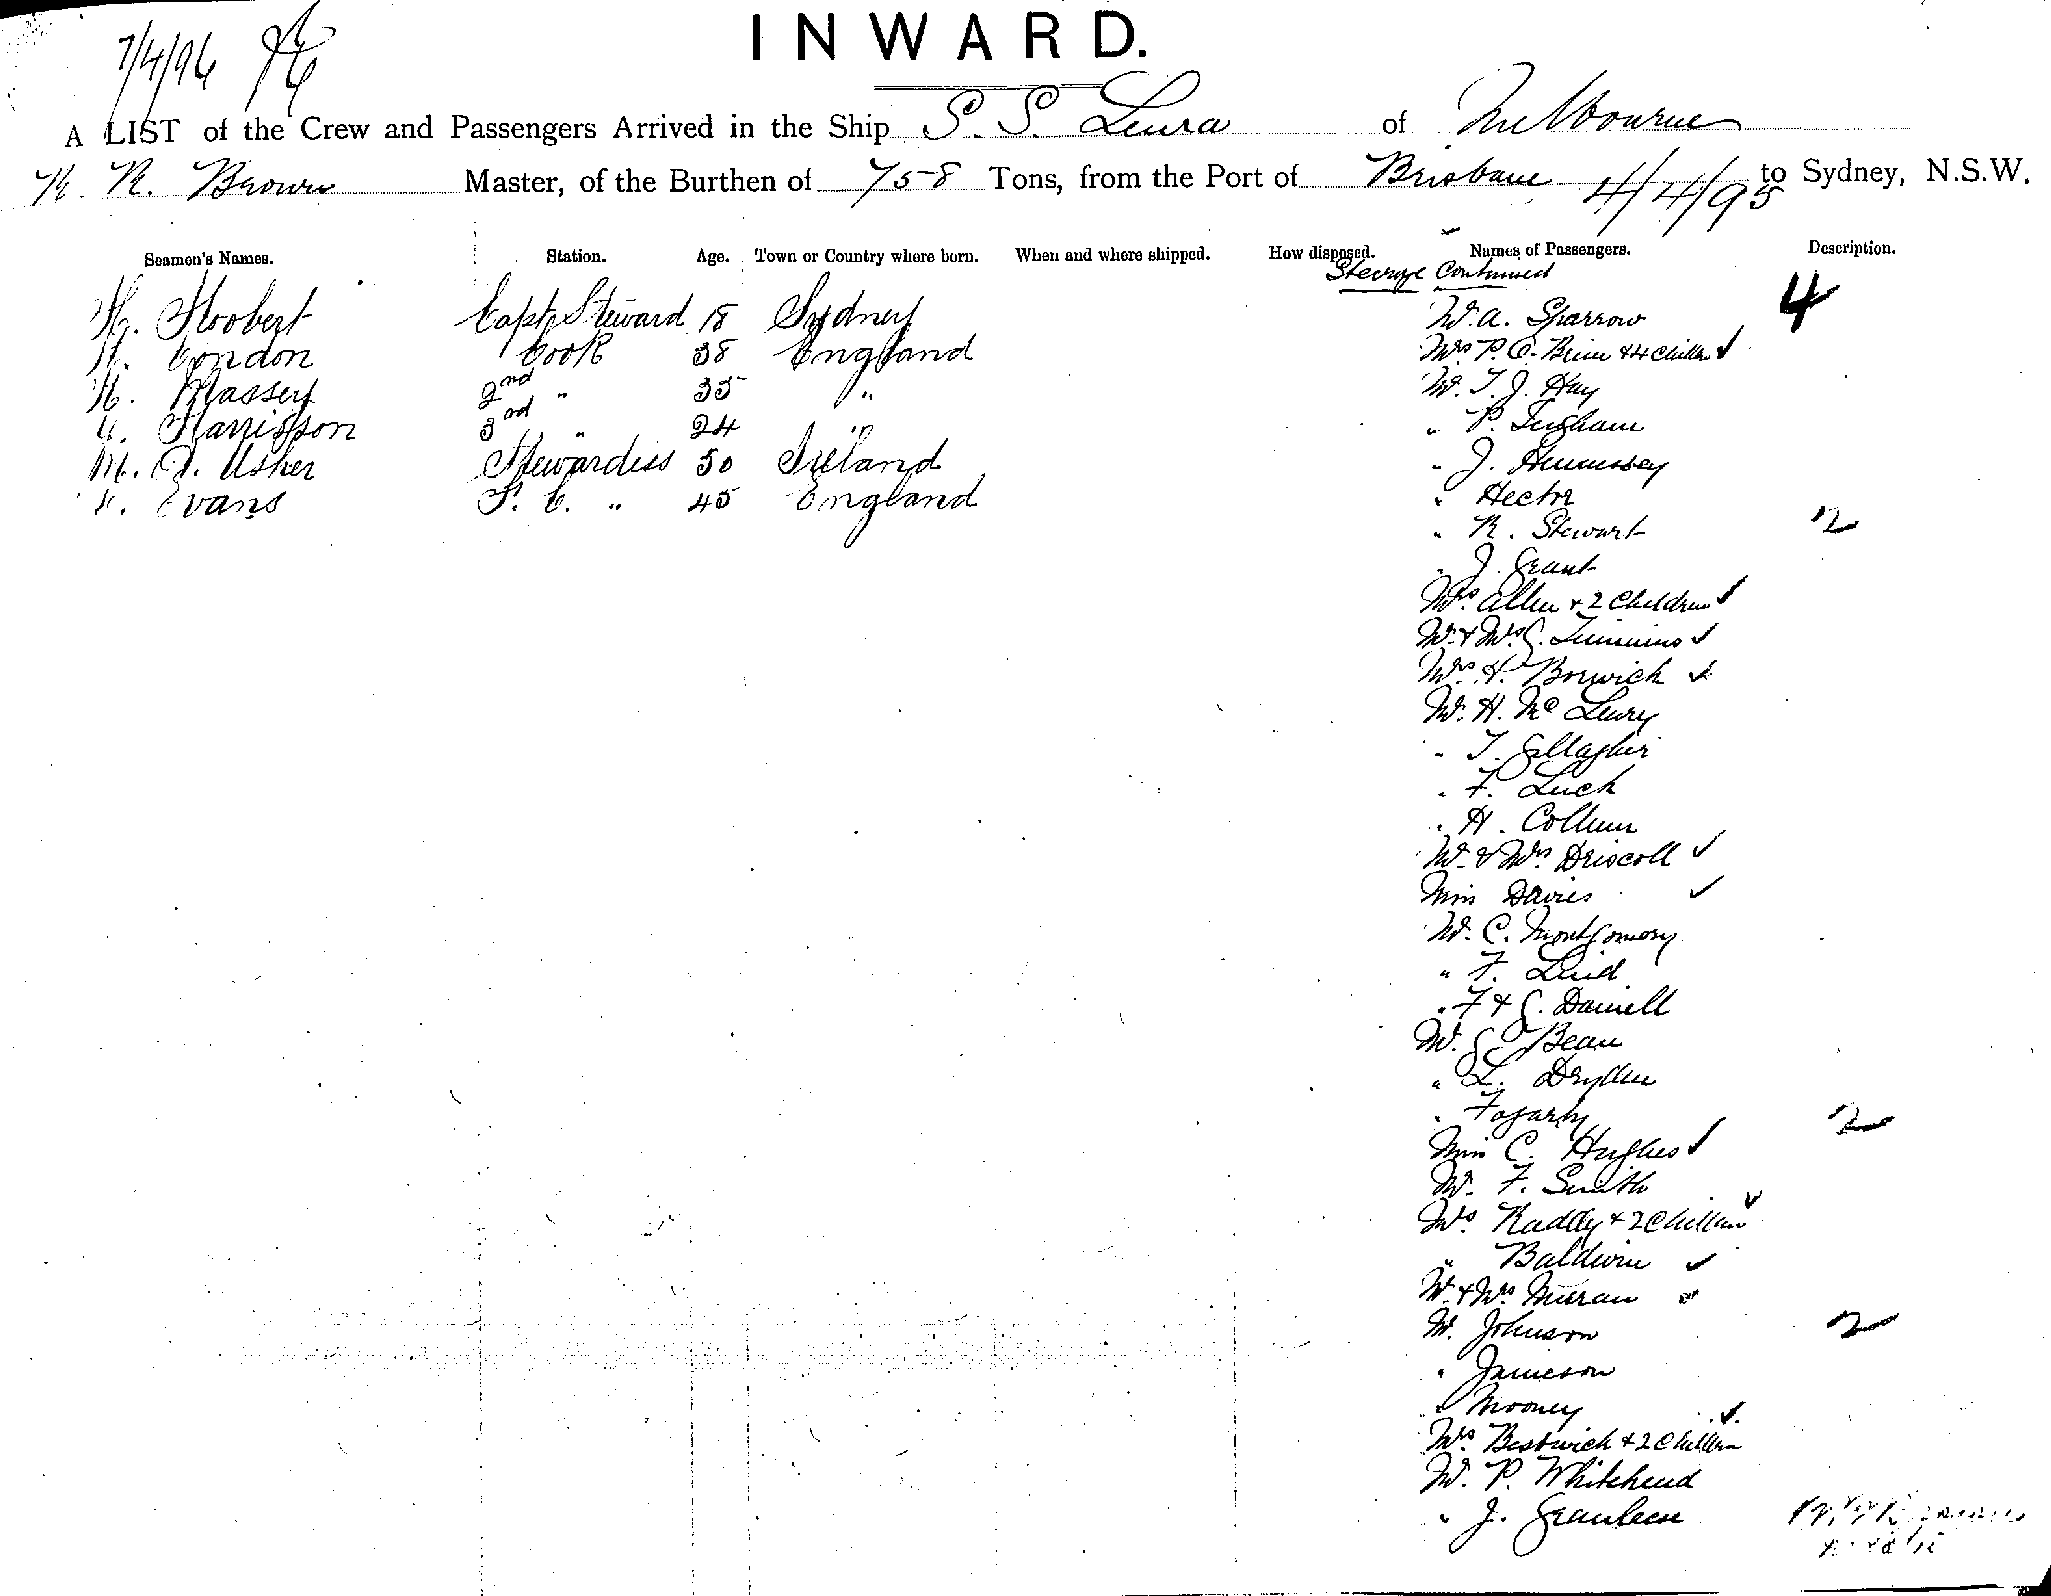 INWARD.
7/4/96
A LIST of the Crew and Passengers Arrived in the Ship S. S. Leura of Melbourne
Brown Master, of the Burthen of 758 Tons, from the Port of Brisbane 4/4/95 to Sydney, N.S.W.
Seamen's Names. Station. Age. Town or Country where born. When and where shipped. How disposed. Names of Passengers. Description.
Steerage Continued
H. Hoobert Capt. Steward 18 Sydney W. A. Sparrow 4
London Cook 38 England Mrs P. O. Brien & 4 Children
Massey 2nd " 35 " Mr. T. J. Hay
Harrisson 3rd " 24 " " P. Ingham
M. J. Usher Stewardess 50 Ireland " J. Hennessey
Evans F. C. " 45 England " Hector
" R. Stewart 2
" J. Grant
Mrs. Allen & 2 Children
Mr. & Mrs. Timmins
Mrs. H. Borwick
Mr. H. Mc Leury
" T. Gallagher
" F. Luck
" H. Collum
Mr. & Mrs. Driscoll
Miss Davies
Mr. C. Montgomery
" F. Luid
" F & G. Daniell
Mr. Bean
" L. Dryden
" Fogarty 2
Miss C. Hughes
Mr. F. Smith
Mrs. Raddly & 2 Children
" Baldwin
Mr & Mrs Murran
Mr. Johnson 2
" Jameson
" Mooney
Mrs. Bestwick & 2 Children
Mr. P. Whitehead
" J. Granleese